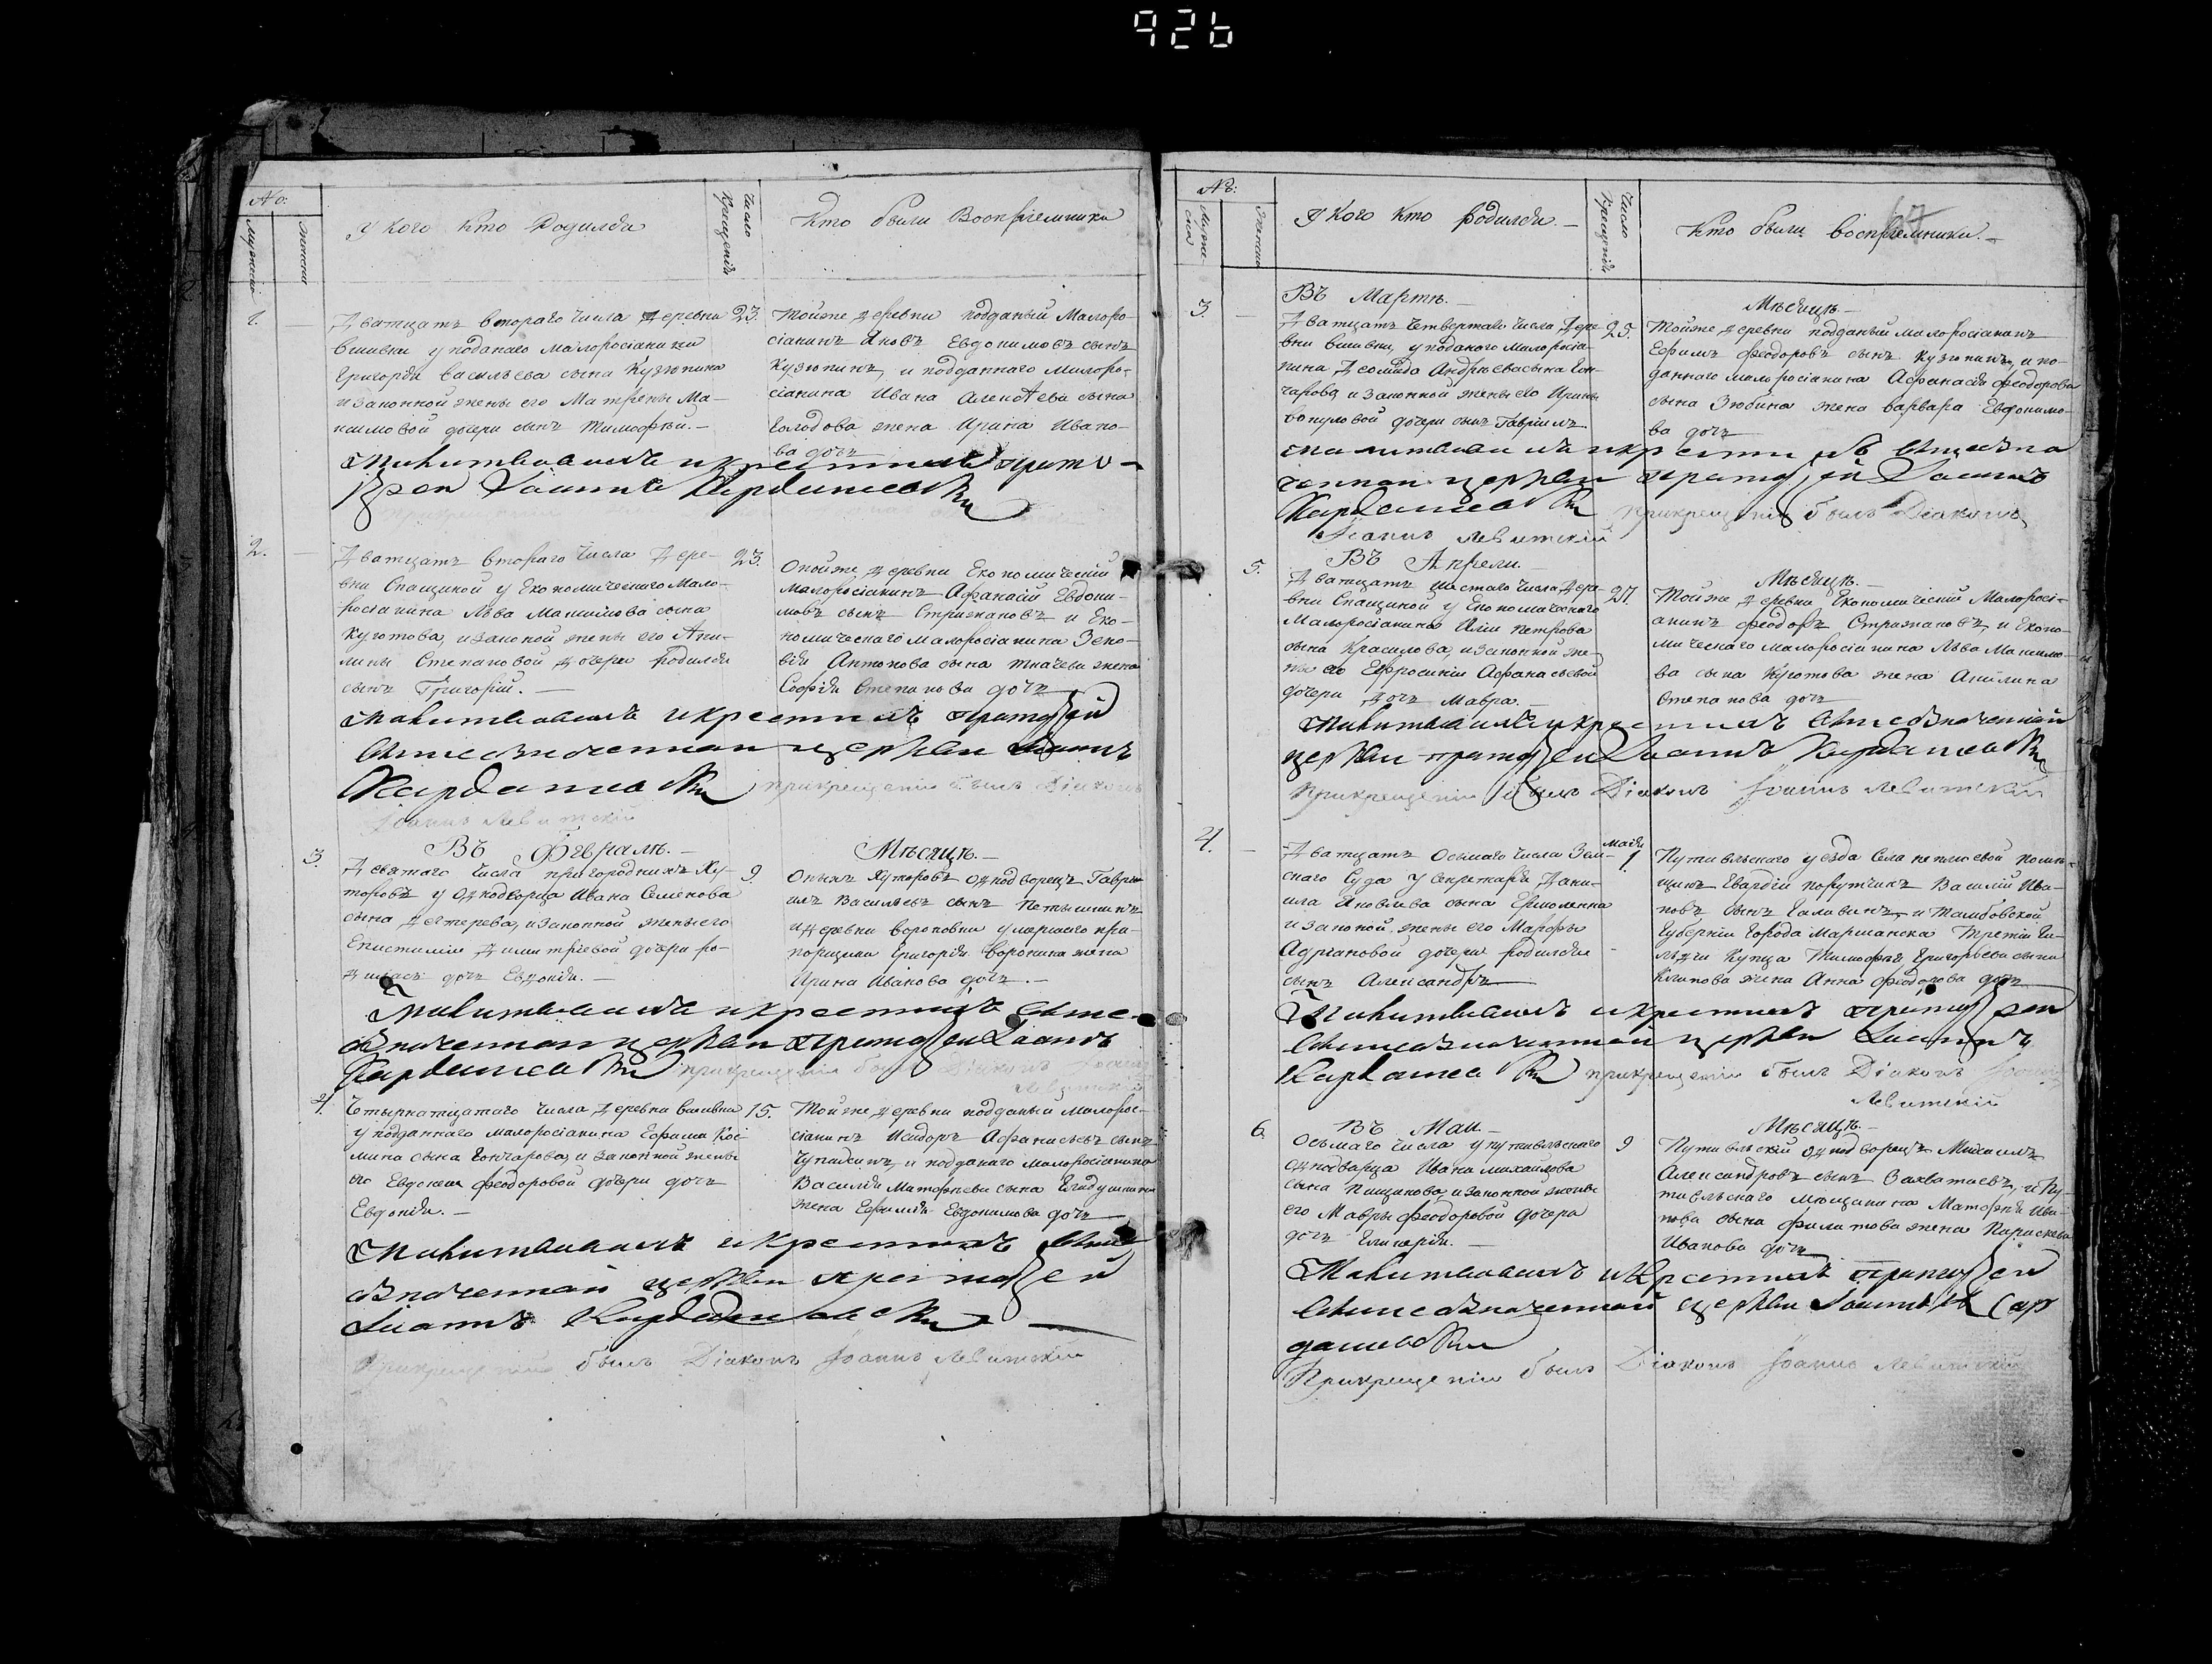 926
№:
Мужеска
Женска
У Кого Кто Родился
Число Крещенія
Кто были Восприемники
1.
Дватцать втораго числа деревни
Вшивки у подданаго малоросіанина
Григорія Васильева сына Кузюпина
и законной жены его Матрены Ма-
ксимовой дочери сынъ Тимофѣй.
23.
Тойже деревни подданый Малоро-
сіанинъ Яковъ Евдокимовъ сынъ
Кузюпинъ, и подданнаго Малоро-
сіанина Ивана Алексѣева сына
Голодова жена Ирина Ивано-
ва дочь
Молитвовалъ и крестилъ прото-
іерей Іоаннъ Кардашевскій
2.
Дватцать втораго числа Дере-
вни Спащиной у Економическаго Мало-
росіанина Лва Максимова сына
Куготова, и законой жены его Аки-
лины Степановой дочери родился
сынъ Григорій.
23.
Оной же деревни Економическій
Малоросіанинъ Афанасій Евдоки-
мовъ сынъ Стрижановъ и Еко-
номическаго малоросіанина Зено-
вія Антонова сына Ткачева жена
Софія Степанова дочь
Молитвовалъ и крестилъ протоіерей
вышеозначенной церкви Іоаннъ
Кардашевскій при крещеніи былъ Діаконъ
Іоаннъ Левитскій
Въ Февралѣ. Мѣсяцѣ.
3.
Девятаго числа пригороднихъ Ху-
торовъ у Однодворца Ивана Семенова
сына Дегтерева, и законной жены его
Епистиміи Димитріевой дочери ро-
дилась дочь Евдокія.
9.
Оныхъ Хуторовъ однодворецъ Гаври-
илъ Васильевъ сынъ Петышинъ
и деревни вороновки умершаго пра-
порщика Григорія Воронина жена
Ирина Иванова дочь.
Молитвовалъ и крестилъ выше-
означенной церкви протоіерей Іоаннъ
Кардашевскій при крещеніи былъ Діаконъ Іоаннъ
Левитскій
4.
Четырнатцатаго числа деревни вшивки
у подданнаго малоросіанина Ефима Кос-
мина сына Гончарова, и законной жены
его Евдокіи Феодоровой дочери дочь
Евдокія.
15.
Тойже деревни подданый малорос-
сіанинъ Исидоръ Афанасьевъ сынъ
и подданаго малоросіанина
Василія Матфѣева сына
жена Ефимія Евдокимова дочь
Молитвовалъ и крестилъ выше
означенной церкви протоіерей
Іоаннъ Кардашевскій
При крещеніи былъ Діаконъ Іоаннъ Левитскій
№:
Мужеска
Женска
У Кого Кто Родился.
Число Крещенія
Кто были восприемники.
Въ Мартѣ. Мѣсяцѣ.
3.
Дватцать четвертаго числа Дере-
вни вшивки, у поданого малоросіа-
нина Деомида Андрѣева сына Гон-
чарова, и законной жены его Ирины
Вокуловой дочери сынъ Гавріилъ
25.
Тойже деревни подданый малоросіанинъ
Ефимъ Феодоровъ сынъ Кузюпинъ, и по-
даннаго малоросіанина Афанасія Феодорова
сына Зюбина жена Варвара Евдокимо-
ва дочь
Молитвовалъ и крестилъ вышеозна
ченной церкви протоіерей Іоаннъ
Кардашевскій при крещеніи былъ Діаконъ
Іоаннъ Левитскій
Въ Апрели. Мѣсяцѣ.
5.
Дватцать шестаго числа Дере-
вни Спащиной у Економическаго
Малоросіанина Иліи Петрова
сына Красилова, и законной же-
ны его Ефросиніи Афанасьевой
дочери дочь Мавра.
27.
Тойже деревни Економическій Малоросі-
анинъ Феодоръ Стрижановъ, и Еконо-
мическаго малоросіанина Лва Максимо-
ва сына Куготова жена Акилина
Степанова дочь
Молитвовалъ и крестилъ вышеозначенной
церкви протоіерей Іоаннъ Кардашевскій
При крещеніи былъ Діаконъ Іоаннъ Левитскій
4.
Дватцать Осьмаго числа Зем-
скаго Суда у Секретаря Дани-
ила Яковлева сына Ермоленка
и законой жены его Марфы
Адріановой дочери родился
сынъ Александръ
маія
1.
Путивльскаго уезда Села неплюевой помѣ-
щикъ Гвардіи порутчикъ Василій Ива-
новъ сынъ Галавинъ, и Тамбовской
Губерніи Города Маршанска Третій ги-
льдіи Купца Тимофѣя Григорьева сына
Климова жена Анна Феодорова дочь
Молитвовалъ и крестилъ протоіерей
вышеозначенной церкви Іоаннъ
Кардашевскій при крещеніи былъ Діаконъ Іоаннъ
Левитскій
Въ Маи. Мѣсяцѣ.
6.
Осьмаго числа у путивльскаго
однодворца Ивана михайлова
сына Пащикова, и законной жены
его Мавры Феодоровой дочери
дочь Гликерія.
9
Путивльскій однодворецъ Михаилъ
Александровъ сынъ Захватаевъ, и Пу-
тивльскаго мещанина Матфѣя Ива-
нова сына Филатова жена Параскева
Иванова дочь
Молитвовалъ и крестилъ протоіерей
вышеозначенной церкви Іоаннъ Кар
дашевскій
При крещеніи былъ Діаконъ Іоаннъ Левитскій